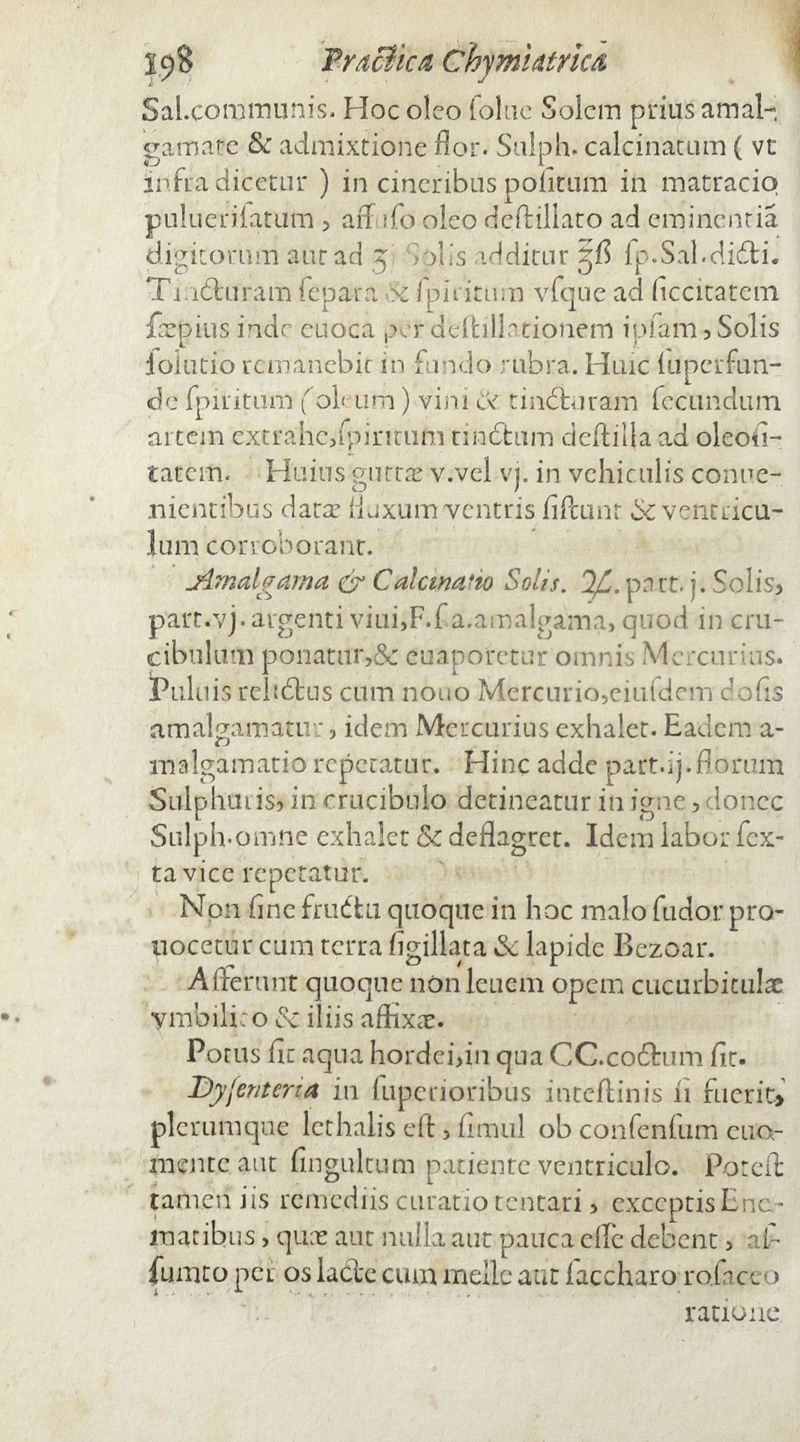 198 Practica Chymiatrica
Sal.communis. Hoc oleo ſolue Solem prius amal-
gamate & admixtione flor. Sulph. calcinatum ( vt
infra dicetur ) in cineribus poſitum in matracio
pulueriſatum , affuſo oleo deſtillato ad eminentiã
digitorum aut ad ʒ Solis additur ℥ß ſp.Sal.dicti.
Tincturam ſepara & ſpiritum vſque ad ſiccitatem
ſæpius inde euoca per deſtillationem ipſam , Solis
ſolutio remanebit in fundo rubra. Huic ſuperfun-
de ſpiritum (oleum ) vini & tincturam ſecundum
artem extrahe,ſpiritum tinctum deſtilla ad oleoſi-
tatem. Huius guttæ v.vel vj. in vehiculis conue-
nientibus datæ fluxum ventris ſiſtunt & ventricu-
lum corroborant.
Amalgama & Calcinatio Solis. ♃. part. j. Solis,
part.vj. argenti viui,F.ſ.a.amalgama, quod in cru-
cibulum ponatur,& euaporetur omnis Mercurius.
Puluis relictus cum nouo Mercurio,eiuſdem doſis
amalgamatur , idem Mercurius exhalet. Eadem a-
malgamatio repetatur. Hinc adde part.ij.florum
Sulphuris, in crucibulo detineatur in igne , donec
Sulph.omne exhalet & deflagret. Idem labor ſex-
ta vice repetatur.
Non ſine fructu quoque in hoc malo ſudor pro-
uocetur cum terra ſigillata & lapide Bezoar.
Afferunt quoque non leuem opem cucurbitulæ
vmbilico & iliis affixæ.
Potus ſit aqua hordei,in qua CC.coctum ſit.
Dyſenteria in ſuperioribus inteſtinis ſi fuerit,
plerumque lethalis eſt , ſimul ob conſenſum euo-
mente aut ſingultum patiente ventriculo. Poteſt
tamen iis remediis curatio tentari , exceptis Ene-
matibus , quæ aut nulla aut pauca eſſe debent , aſ-
ſumto per os lacte cum melle aut ſaccharo roſaceo
ratione